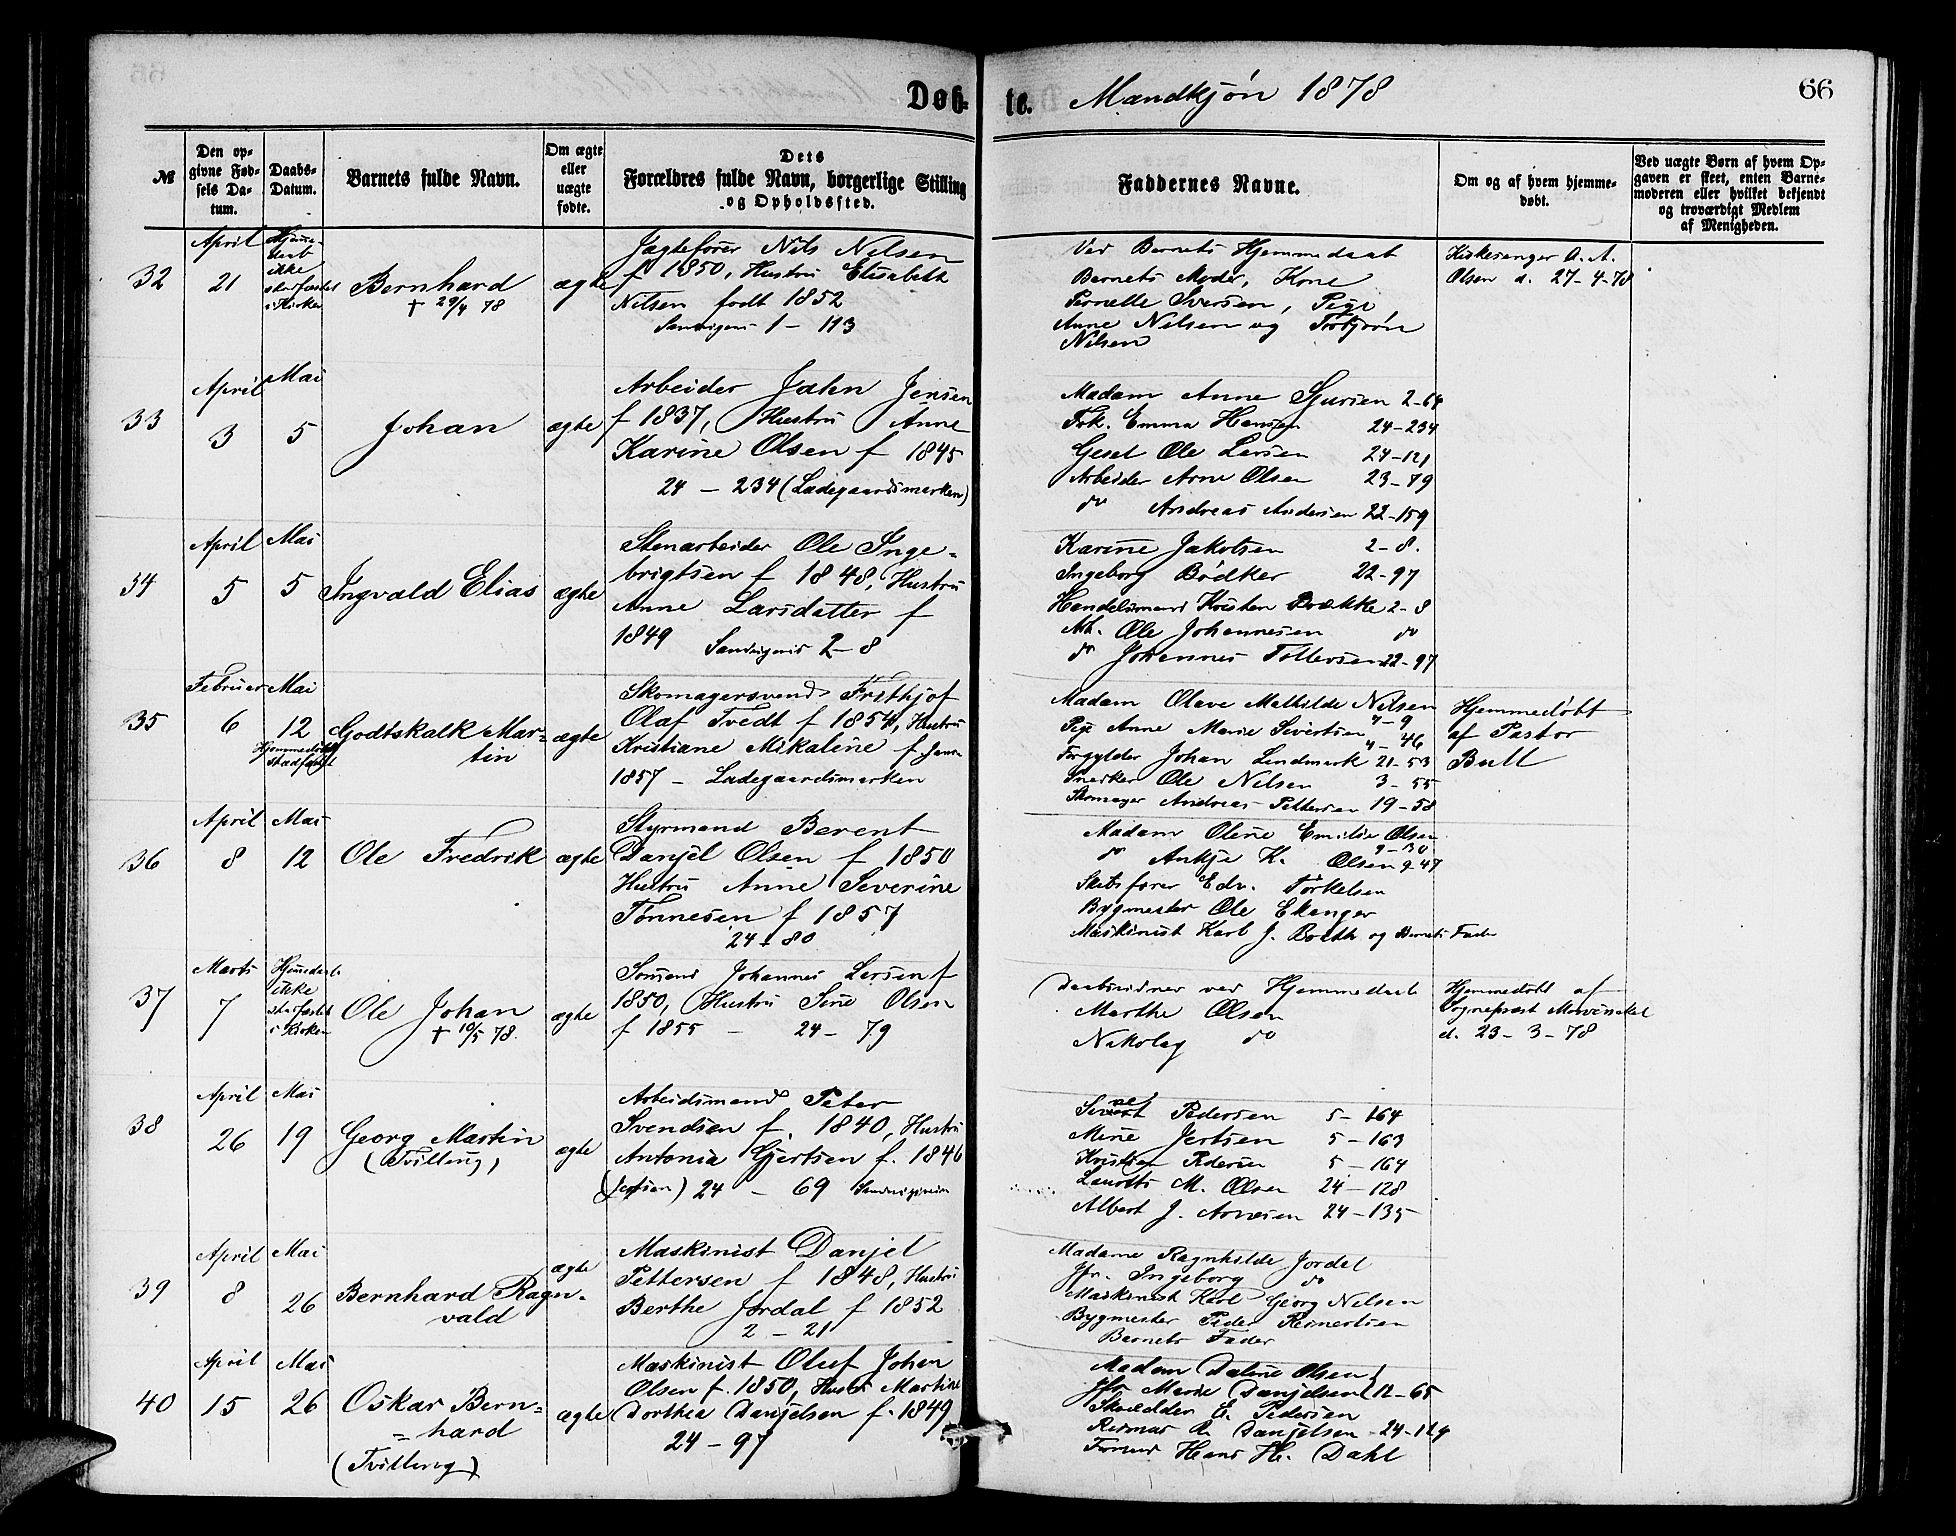 Døb-
te. Mandkjøn 1878
66
№
Den op-
givne Fød-
sels Da-
tum.
Daabs-
Datum.
Barnets fulde Navn.
Om ægte
eller
uægte
fødte.
Dets
Forældres fulde Navn, borgerlige Stilling
og Opholdssted.
Faddernes Navne.
Om og af hvem hjemme-
døbt.
Ved uægte Børn af hvem Op-
gaven er skeet, enten Barne-
moderen eller hvilket bekjendt
og troværdigt Medlem
af Menigheden.
32
April
21
ikke
Bernhard
† 29/4 78
ægte
Jagtefører Nils Nilsen
f 1850, Hustru Elisabeth
Nilsen født 1852
Sandvigen 1 – 113
Ved Barnets Hjemmedaab
Barnets Moder, Kone
Pernelle Iversen, Pige
Anne Nilsen og Torbjørn
Nilsen
Kirkesanger A. A.
Olsen d. 27-4-78
33
April
3
Mai
5
Johan
ægte
Arbeider John Jensen
f 1837, Hustru Anne
Karine Olsen f 1845
24 – 234 (Ladegaardsmarken)
Madam Anne 2-64
Frk. Emma Hansen 24-234
Gesel Ole Larsen 24-121
Arbeider Arne Olsen 23-79
do Andreas Andersen 22-159
34
April
5
Mai
5
Ingvald Elias
ægte
Stenarbeider Ole Inge-
brigtsen f 1848, Hustru
Anne Larsdatter f
1849 Sandvigen 2-8
Karine Jakobsen 2-8.
Ingeborg Bødker 22-97
Handelsmand Kristen Brække 2-8
Arb. Ole Johannesen do
do Johannes Tollevsen 22-97
35
Februar
6
Mai
12
Hjemmedøbt
stadfæstet
Godtskalk Mar-
tin
ægte
Skomagersvend Frithjof
Olaf Tvedt f 1854, Hustru
Kristiane Mikaline f Jansen
1857 – Ladegaardsmarken
Madam Olave Mathilde Nilsen
4-9
Pige Anne Marie Sivertsen
4-46
Forgylder Johan Lindmark 21-53
Snerker Ole Nilsen 3-55
Skomager Andreas Pettersen 19-58
Hjemmedøbt
af Pastor
Bull
36
April
8
Mai
12
Ole Fredrik
ægte
Styrmand Berent
Danjel Olsen f 1850
Hustru Anne Severine
Tønnesen f 1857
24-80
Madam Olene Emilie Olsen
9-30
do Antje K. Olsen 9-47
Skibsfører Edv. Torkelsen
Bygmester Ole Ekanger
Maskinist Karl J. Boeth og Barnets Fader
37
Marts
7
Hjemmedøbt
ikke
stadfæstet
i Kirken
Ole Johan
† 10/5 78.
ægte
Sømand Johannes Larsen f
1850, Hustru Sine Olsen
f 1855 – 24-79
Daabsvidner ved Hjemmedaab
Marthe Olsen
Nikolay do
Hjemmedøbt af
Sognepræst
d. 23-3-78
38
April
26
Mai
19
Georg Martin
(Tvilling)
ægte
Arbeidsmand Peter
Svendsen f. 1840, Hustru
Antonia Gjertsen f. 1846
24 – 69 Sandvigsveien
Pedersen 5-164
Mine Jertsen 5-163
Kristian Pedersen 5-164
Lauritz M. Olsen 24-128
Albert J. Arnesen 24-135
39
April
8
Mai
26
Bernhard Ragn-
vald
ægte
Maskinist Danjel
Pettersen f 1848, Hustru
Berthe Jordal f 1852
2-21
Madame Ragnhilde Jordal
Jfr. Ingeborg do
Maskinist Karl Georg Nilsen
Bygmester Peder Reinertsen
Barnets Fader
40
April
15
Mai
26
Oskar Bern-
hard
(Tvilling)
ægte
Maskinist Oluf Johan
Olsen f. 1850, Hustr Martine
Dorthea Danjelsen f. 1849
24-97
Madam Daline Olsen
Jfr. Marie Danjelsen 12-65
E. Pedersen
R. Danjelsen 24-124
Hans H. Dahl